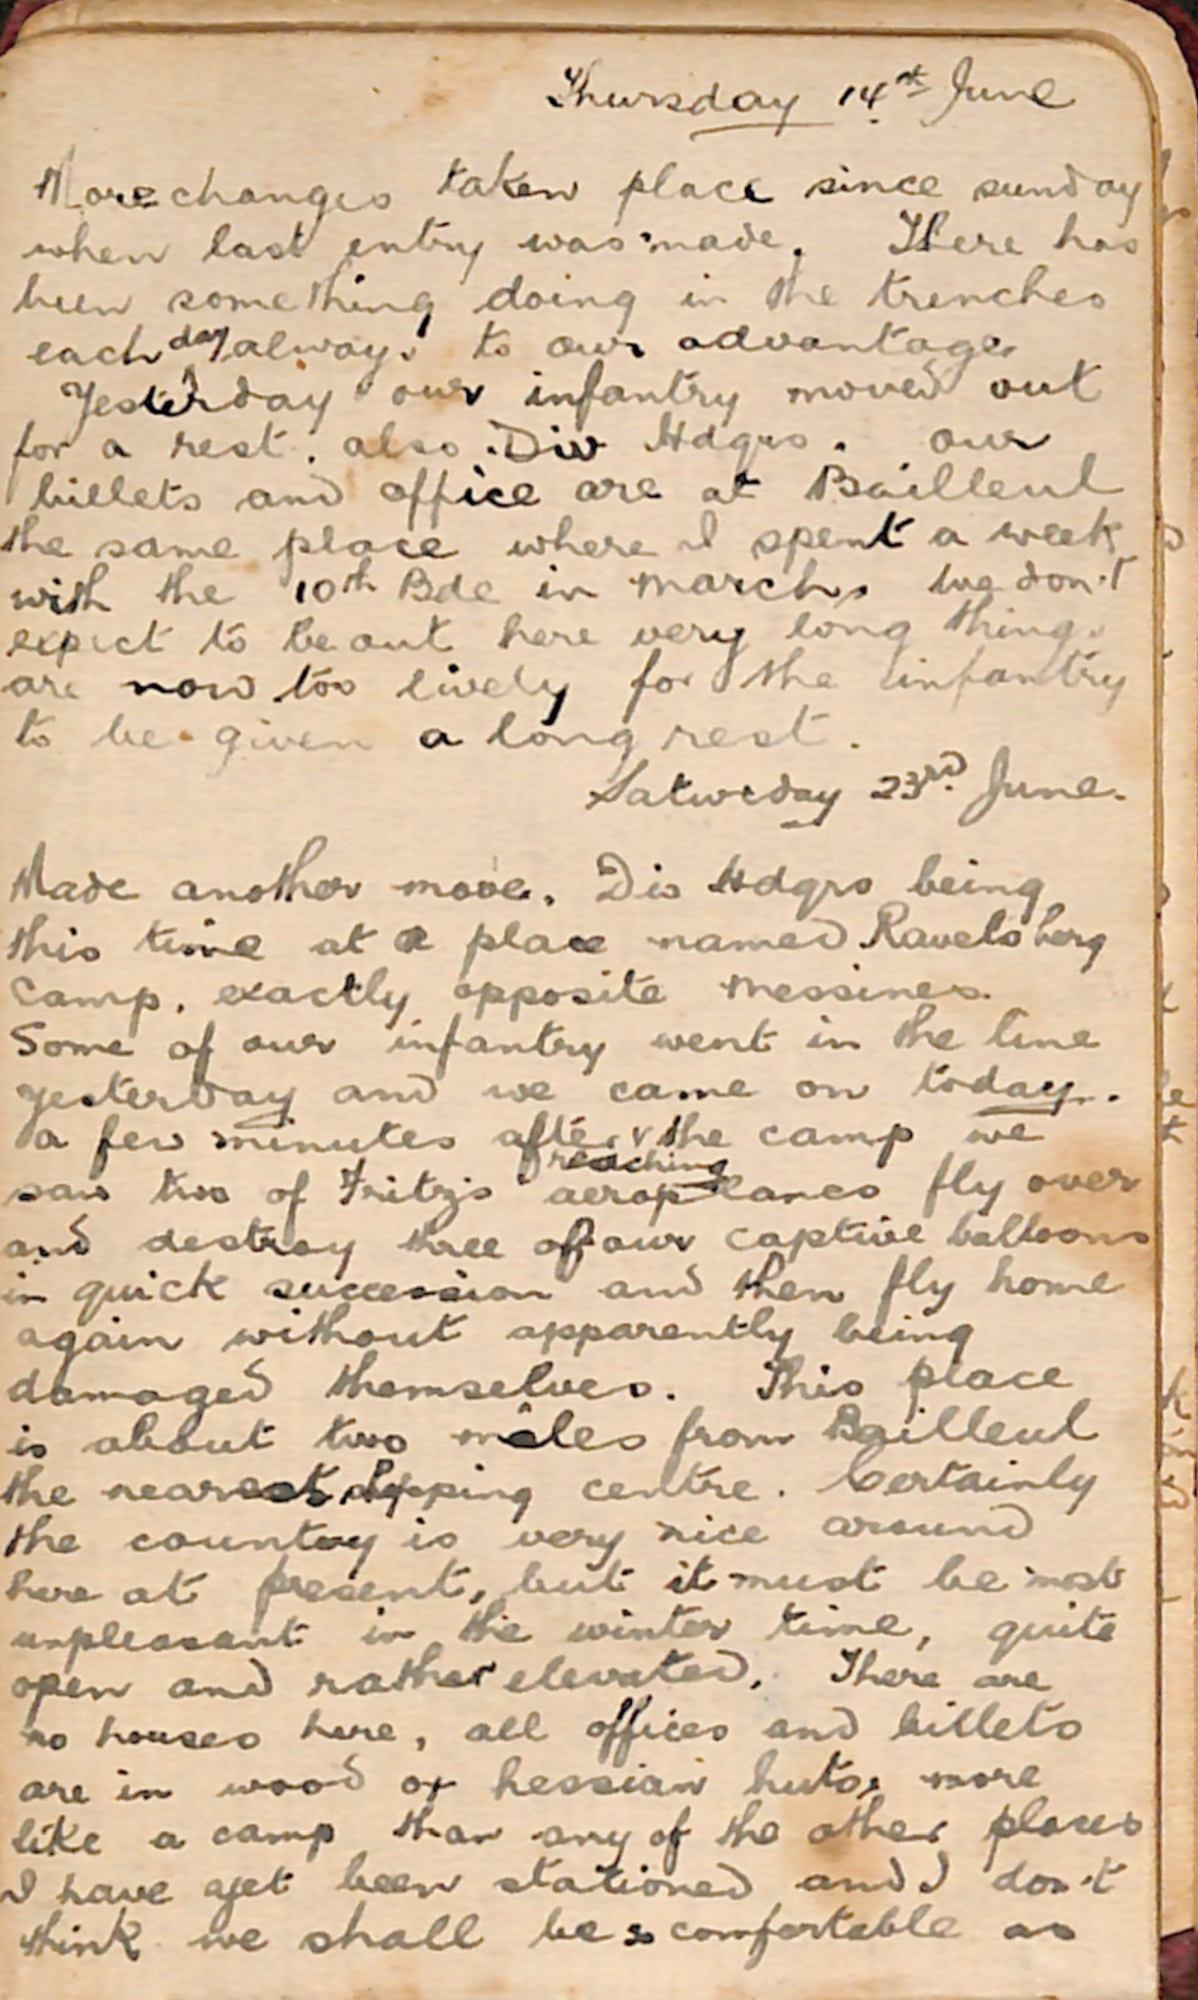 Thursday 14th June
More changes taken place since sunday
when last entry was made. There has
been something doing in the trenches
each day always to our advantage.
Yesterday our infantry moved out
for a rest. also Div Hdqrs. our
billets and office are at Bailleul
the same place where I spent a week
with the 10th Bde in March. We don't
expect to be out here very long things
are now too lively for the infantry
to be given a long rest.
Saturday 23rd June.
Made another move. Div Hdqrs being
this time at a place named Ravelsberg
Camp, exactly opposite Messines.
Some of our infantry went in the line
yesterday and we came on today.
a few minutes after reaching the camp we
saw two of Fritz's aeroplanes fly over
and destroy three of our captive balloons
in quick succession and then fly home
again without apparently being
damaged themselves. This place
is about two miles from Bailleul
the nearest shopping centre. Certainly
the country is very nice around
here at present, but it must be most
unpleasant in the winter time, quite
open and rather elevated. There are
no houses here, all offices and billets
are in wood or hessian huts, more
like a camp than any of the other places
I have yet been stationed and I don't
think we shall be so comfortable as